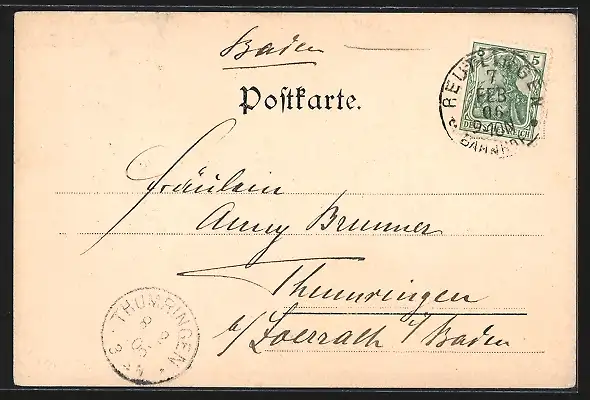 Baden
Postkarte.
5
DEUTSCHES REICH
REUTLINGEN
7
FEB
06
9-10 V
BAHNHOF
Fräulein
Anny Brunner
Thumringen
b/ Loerrach i/ Baden
THUMRINGEN
8 2
06
3-4